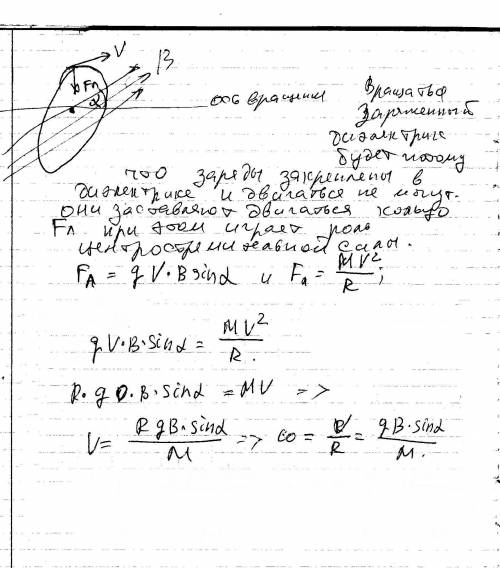 V
B
Fл
α
ось вращения
Вращаться
Заряженный
диэлектрик
будет потому
что заряды закреплены в
диэлектрике и двигаться не могут.
они заставляют двигаться кольцо
Fл при этом играет роль
центростремительной силы.
Fл = qV·B sinα и Fл = MV²/R;
qV·B·sinα = MV²/R.
R·q·B·sinα = MV =>
V = RqB·sinα/M => ω = V/R = qB·sinα/M.